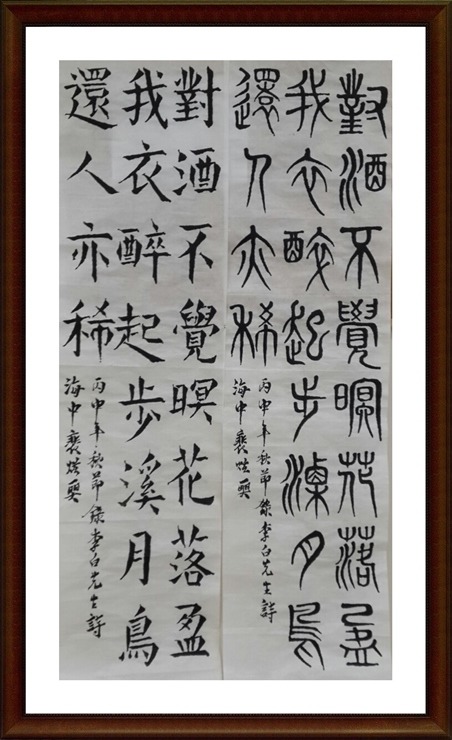 對酒不覺暝花落盈
我衣醉起步溪月鳥
還人亦稀
丙申年秋節錄李白先生詩
海中
對酒不覺暝花落盈
我衣醉起步溪月鳥
還人亦稀
丙申年秋節錄李白先生詩
海中